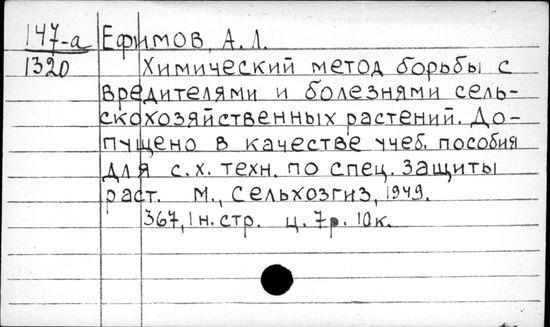 147-а Ефимов, А. Л.
1320 Химический метод борьбы с
вредителями и болезнями сель-
скохозяйственных растений. До-
пущено в качестве учеб. пособия
для с.х. техн. по спец. защиты
раст. М., Сельхозгиз, 1949.
367, 1 н. стр. ц. 7р. 10к.